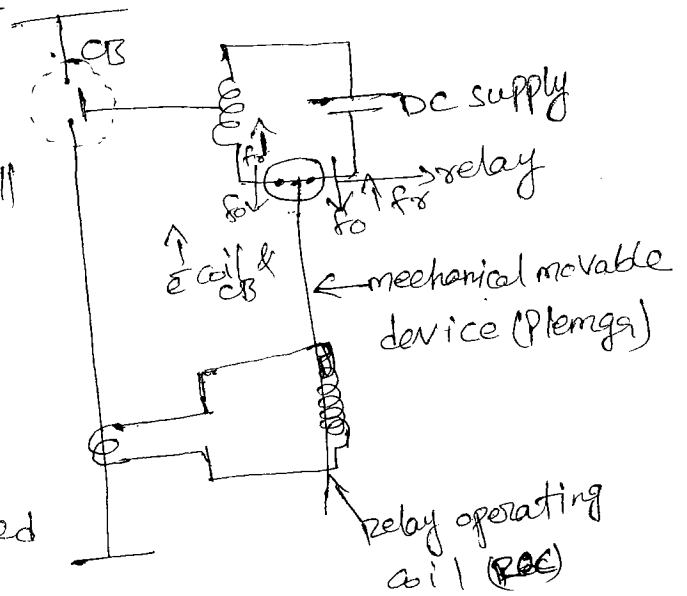 CB
DC supply
ll
relay
fr
fo
fo
fr
ē coil &
CB
mechanical movable
device (Plemgr)
ed
relay operating
coil (ROC)